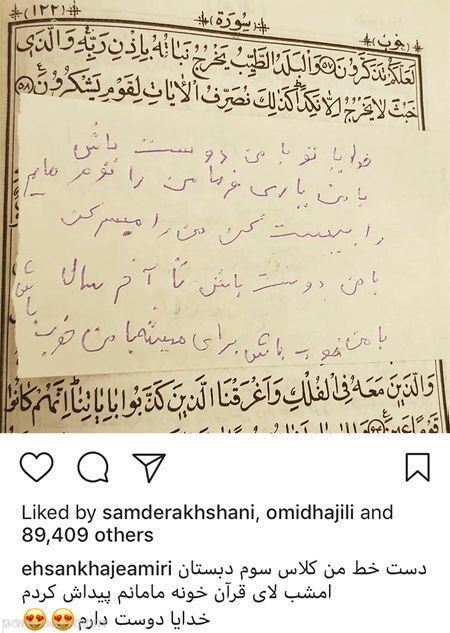 (١٢٢) (سُورَة) (خوب)
لَعَلَّكُمْ تَذَكَّرُونَ ٥٧ وَالْبَلَدُ الطَّيِّبُ يَخْرُجُ نَبَاتُهُ بِإِذْنِ رَبِّهِ وَالَّذِي
خَبُثَ لَا يَخْرُجُ إِلَّا نَكِدًا كَذَلِكَ نُصَرِّفُ الْآيَاتِ لِقَوْمٍ يَشْكُرُونَ ٥٨
خدایا تو با من دوست باش
با من یاری فرما من را
را بیست کن من را میسر کن
با من دوست باش تا آخر سال
با من خوب باش برای همیشه با من خوب باش
وَالَّذِينَ مَعَهُ فِي الْفُلْكِ وَأَغْرَقْنَا الَّذِينَ كَذَّبُوا بِآيَاتِنَا إِنَّهُمْ كَانُوا
قَوْمًا عَمِينَ
Liked by samderakhshani, omidhajili and
89,409 others
ehsankhajeamiri دست خط من کلاس سوم دبستان
امشب لای قرآن خونه مامانم پیداش کردم
خدایا دوست دارم 😍😍